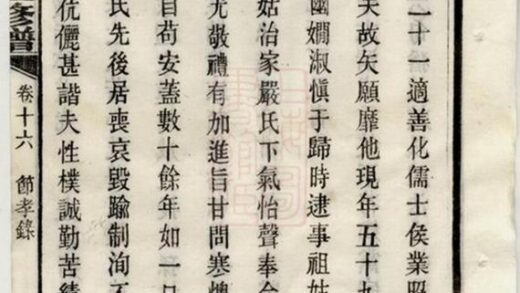 二十一適善化儒士侯業
夫故矢願靡他現年五十九
幽嫺淑慎于歸時逮事祖姑
姑治家嚴氏下氣怡聲奉
尤敬禮有加進旨甘問寒燠
自苟安蓋數十餘年如一日
氏先後居喪哀毀踰制洵不
伉儷甚諧夫性樸誠勤苦
修譜
卷十六
節孝錄